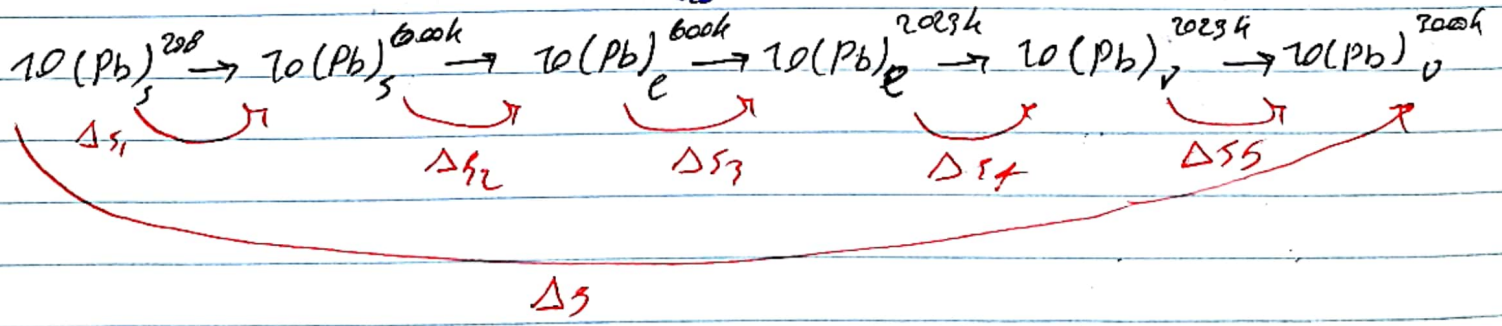 10(Pb)s^298 → 10(Pb)s^600k → 10(Pb)e^600k → 10(Pb)e^2023k → 10(Pb)v^2023k → 10(Pb)v^3000k
ΔS1 ΔS2 ΔS3 ΔS4 ΔS5
ΔS